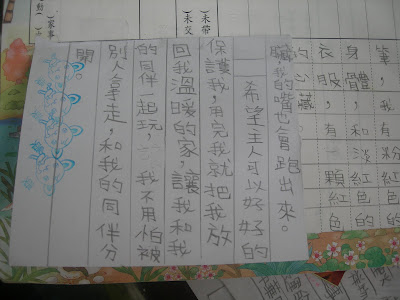 筆，我有粉紅色的
身體，和淡紅色的
衣服，有一顆紅色
的心藏
我的嘴也會跑出來。
希望主人可以好好的
保護我，用完我就把我放
回我溫暖的家，讓我和我
的同伴一起玩，我不用怕被
別人拿走，和我的同伴分
開。
(未帶)
(未交)
(家事